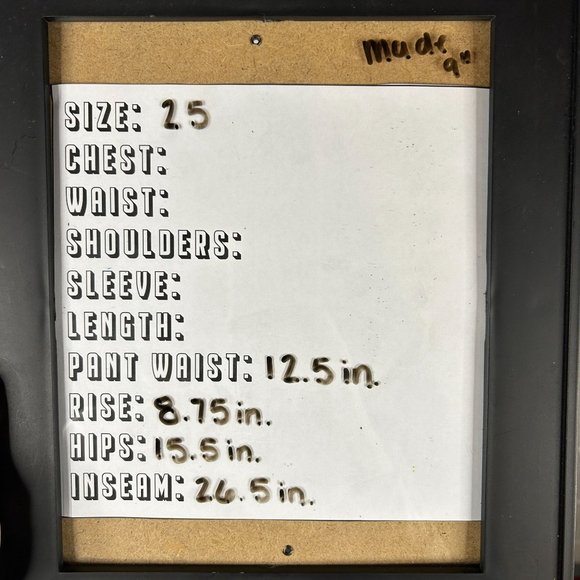 made
SIZE: 25
CHEST:
WAIST:
SHOULDERS:
SLEEVE:
LENGTH:
PANT WAIST: 12.5 in.
RISE: 8.75 in.
HIPS: 15.5 in.
INSEAM: 26.5 in.